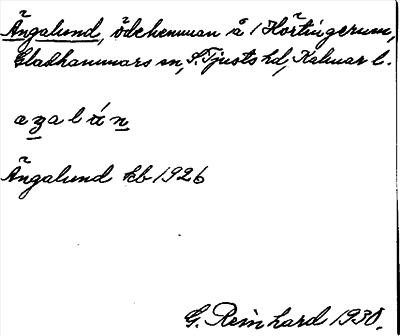 Ängalund, ödehemman å 1 Hörtingerum,
Gladhammars sn, S. Tjusts hd, Kalmar l.
Ängalund kb 1926
G. Reinhard 1930.